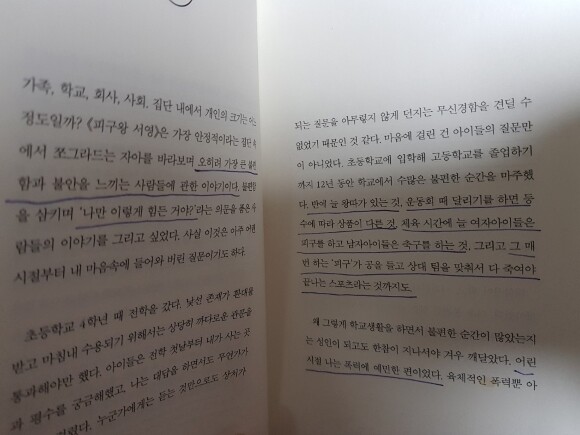 가족, 학교, 회사, 사회. 집단 내에서 개인의 크기는 어느
정도일까? 《피구왕 서영》은 가장 안정적이라는 집단 속
에서 쪼그라드는 자아를 바라보며 오히려 가장 큰 불편
함과 불안을 느끼는 사람들에 관한 이야기이다. 불편함
을 삼키며 '나만 이렇게 힘든 거야?'라는 의문을 품은 사
람들의 이야기를 그리고 싶었다. 사실 이것은 아주 어린
시절부터 내 마음속에 들어와 버린 질문이기도 하다.
초등학교 4학년 때 전학을 갔다. 낯선 존재가 환대를
받고 마침내 수용되기 위해서는 상당히 까다로운 관문을
통과해야만 했다. 아이들은 전학 첫날부터 내가 사는 곳
과 평수를 궁금해했고, 나는 대답을 하면서도 무언가가
누군가에게는 듣는 것만으로도 상처가
되는 질문을 아무렇지 않게 던지는 무신경함을 견딜 수
없었기 때문인 것 같다. 마음에 걸린 건 아이들의 질문만
이 아니었다. 초등학교에 입학해 고등학교를 졸업하기
까지 12년 동안 학교에서 수많은 불편한 순간을 마주했
다. 반에 늘 왕따가 있는 것, 운동회 때 달리기를 하면 등
수에 따라 상품이 다른 것, 체육 시간에 늘 여자아이들은
피구를 하고 남자아이들은 축구를 하는 것, 그리고 그 매
번 하는 '피구'가 공을 들고 상대 팀을 맞춰서 다 죽여야
끝나는 스포츠라는 것까지도.
왜 그렇게 학교생활을 하면서 불편한 순간이 많았는지
는 성인이 되고도 한참이 지나서야 겨우 깨달았다. 어린
시절 나는 폭력에 예민한 편이었다. 육체적인 폭력뿐 아